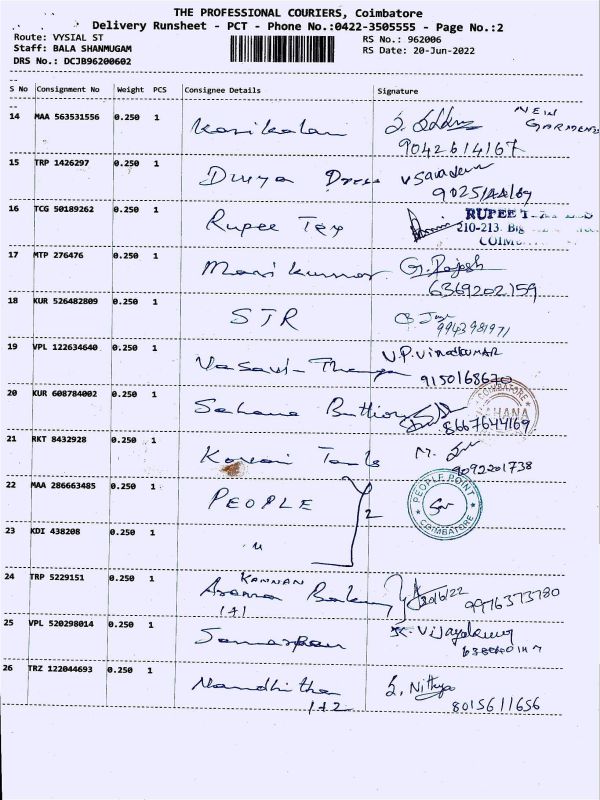 THE PROFESSIONAL COURIERS, Coimbatore
Delivery Runsheet - PCT - Phone No.:0422-3505555 - Page No.:2
Route: VYSIAL ST
RS No.: 962006
Staff: BALA SHANMUGAM
RS Date: 20-Jun-2022
DRS No.: DCJB96200602
S No Consignment No Weight PCS Consignee Details Signature
14 MAA 563531556 0.250 1 Karikalan NEW GARMENTS
9042614167
15 TRP 1426297 0.250 1 Divya Dress
16 TCG 50189262 0.250 1 Rupee Tex RUPEE
210-213. Big
COIM
17 MTP 276476 0.250 1 Mani kumar G. Rajesh
6369202159
18 KUR 526482809 0.250 1 STR
9943981971
19 VPL 122634640 0.250 1 Vasavi Thanga V.P. VINOTKUMAR
9150168670
20 KUR 608784002 0.250 1 Sahana COIMBATORE
8667644169
21 RKT 8432928 0.250 1 M.
9092201738
22 MAA 286663485 0.250 1 PEOPLE 2 PEOPLE POINT
COIMBATORE
23 KDI 438208 0.250 1 "
24 TRP 5229151 0.250 1 KANNAN
9976373780
1+1
25 VPL 520298014 0.250 1 K. Vijayakumar
26 TRZ 122044693 0.250 1 Nandhitha S. Nithya
1+2 8015611656